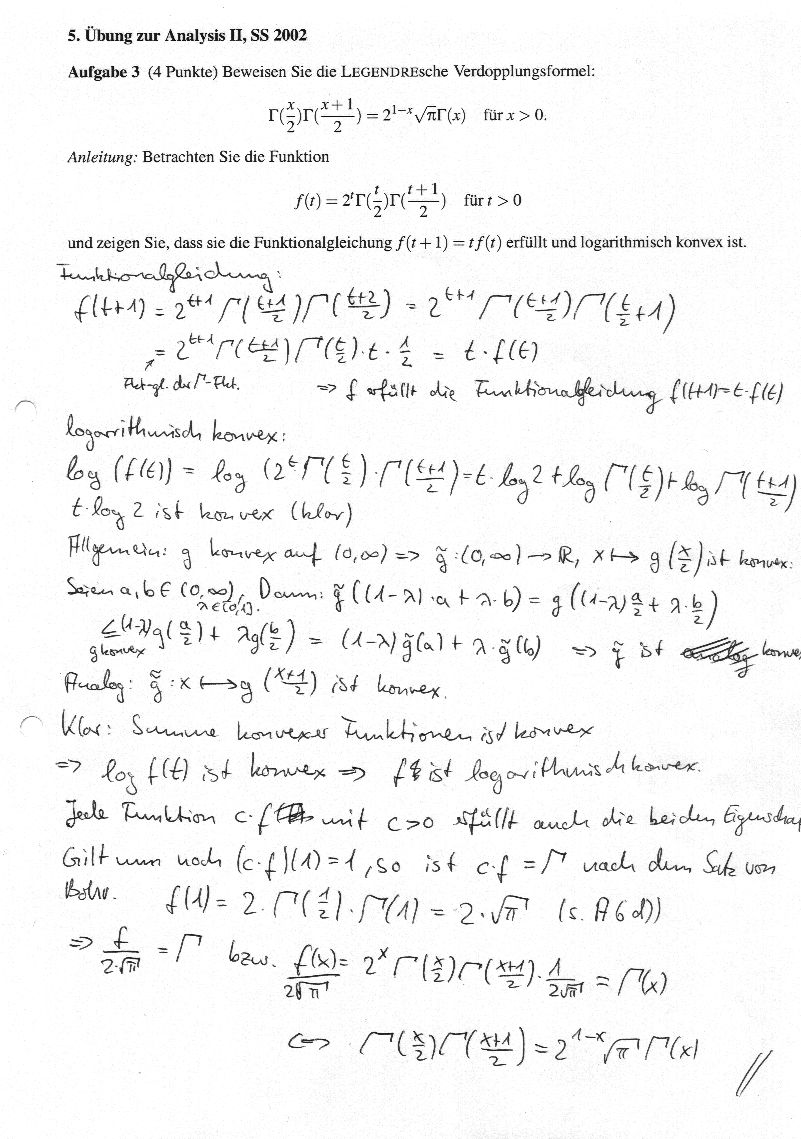 5. Übung zur Analysis II, SS 2002
Aufgabe 3 (4 Punkte) Beweisen Sie die LEGENDREsche Verdopplungsformel:
Γ(x/2)Γ((x+1)/2) = 2^{1−x}√π Γ(x) für x > 0.
Anleitung: Betrachten Sie die Funktion
f(t) = 2^t Γ(t/2)Γ((t+1)/2) für t > 0
und zeigen Sie, dass sie die Funktionalgleichung f(t+1) = t f(t) erfüllt und logarithmisch konvex ist.
Funktionalgleichung:
f(t+1) = 2^{t+1} Γ((t+1)/2) Γ((t+2)/2) = 2^{t+1} Γ((t+1)/2) Γ(t/2 + 1)
= 2^{t+1} Γ((t+1)/2) Γ(t/2) · t · 1/2 = t · f(t)
Fkt-gl. der Γ-Fkt. ⇒ f erfüllt die Funktionalgleichung f(t+1) = t·f(t)
logarrithmisch konvex:
log (f(t)) = log (2^t Γ(t/2) · Γ((t+1)/2) = t · log 2 + log Γ(t/2) + log Γ((t+1)/2)
t·log 2 ist konvex (klar)
Allgemein: g konvex auf (0,∞) ⇒ g̃ : (0,∞) → ℝ, x ↦ g(x/2) ist konvex:
Seien a,b ∈ (0,∞), λ∈(0,1). Dann: g̃((1−λ)·a + λ·b) = g((1−λ) a/2 + λ · b/2)
≤ g konvex (1−λ)g(a/2) + λg(b/2) = (1−λ)g̃(a) + λ·g̃(b) ⇒ g̃ ist konve
Analog: g̃ : x ↦ g((x+1)/2) ist konvex.
Klar: Summe konvexer Funktionen ist konvex
⇒ log f(t) ist konvex ⇒ f ist logarithmisch konvex.
Jede Funktion c·f mit c>0 erfüllt auch die beiden Eigenscha
Gilt nun noch (c·f)(1) = 1, so ist c·f = Γ nach dem Satz von
Bohr. f(1) = 2 · Γ(1/2) · Γ(1) = 2 · √π (s. A 6 d))
⇒ f/(2·√π) = Γ bzw. f(x)/(2√π) = 2^x Γ(x/2) Γ((x+1)/2) · 1/(2√π) = Γ(x)
⇔ Γ(x/2) Γ((x+1)/2) = 2^{1−x} √π Γ(x)